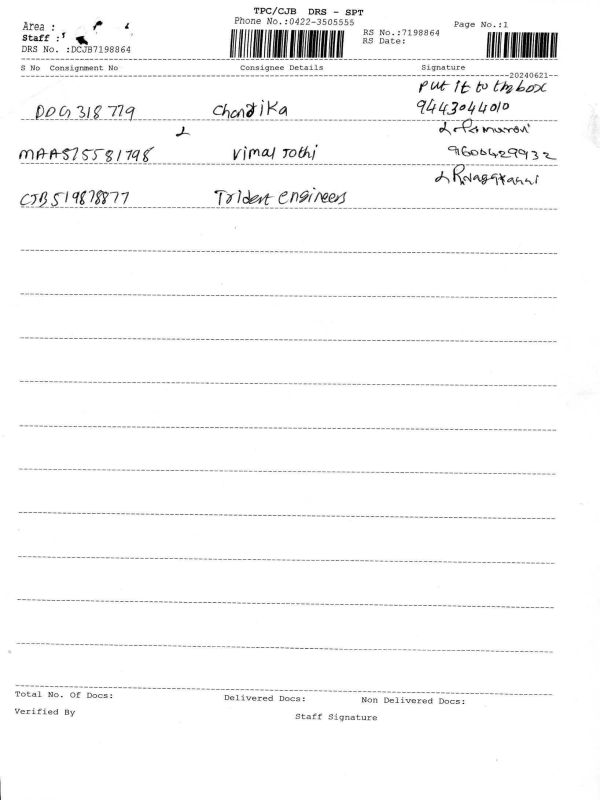 TPC/CJB DRS - SPT
Area :
Phone No.:0422-3505555
Page No.:1
Staff :
RS No.:7198864
RS Date:
DRS No. :DCJB7198864
S No Consignment No Consignee Details Signature
--20240621--
Put it to the box
DDG318779 Chandika 9443044010
MAA515581798 Vimal Jothi 9600429932
CJB519878877 Trident Engineers
Total No. Of Docs: Delivered Docs: Non Delivered Docs:
Verified By
Staff Signature